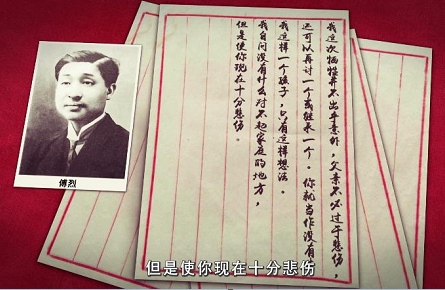 我这次牺牲并不出乎意外，父亲不必过于悲伤，
还可以再讨一个或继承一个。你就当作没有
我这样一个孩子，只有这样想法。
我自问没有什么对不起家庭的地方，
但是使你现在十分悲伤。
傅烈
但是使你现在十分悲伤